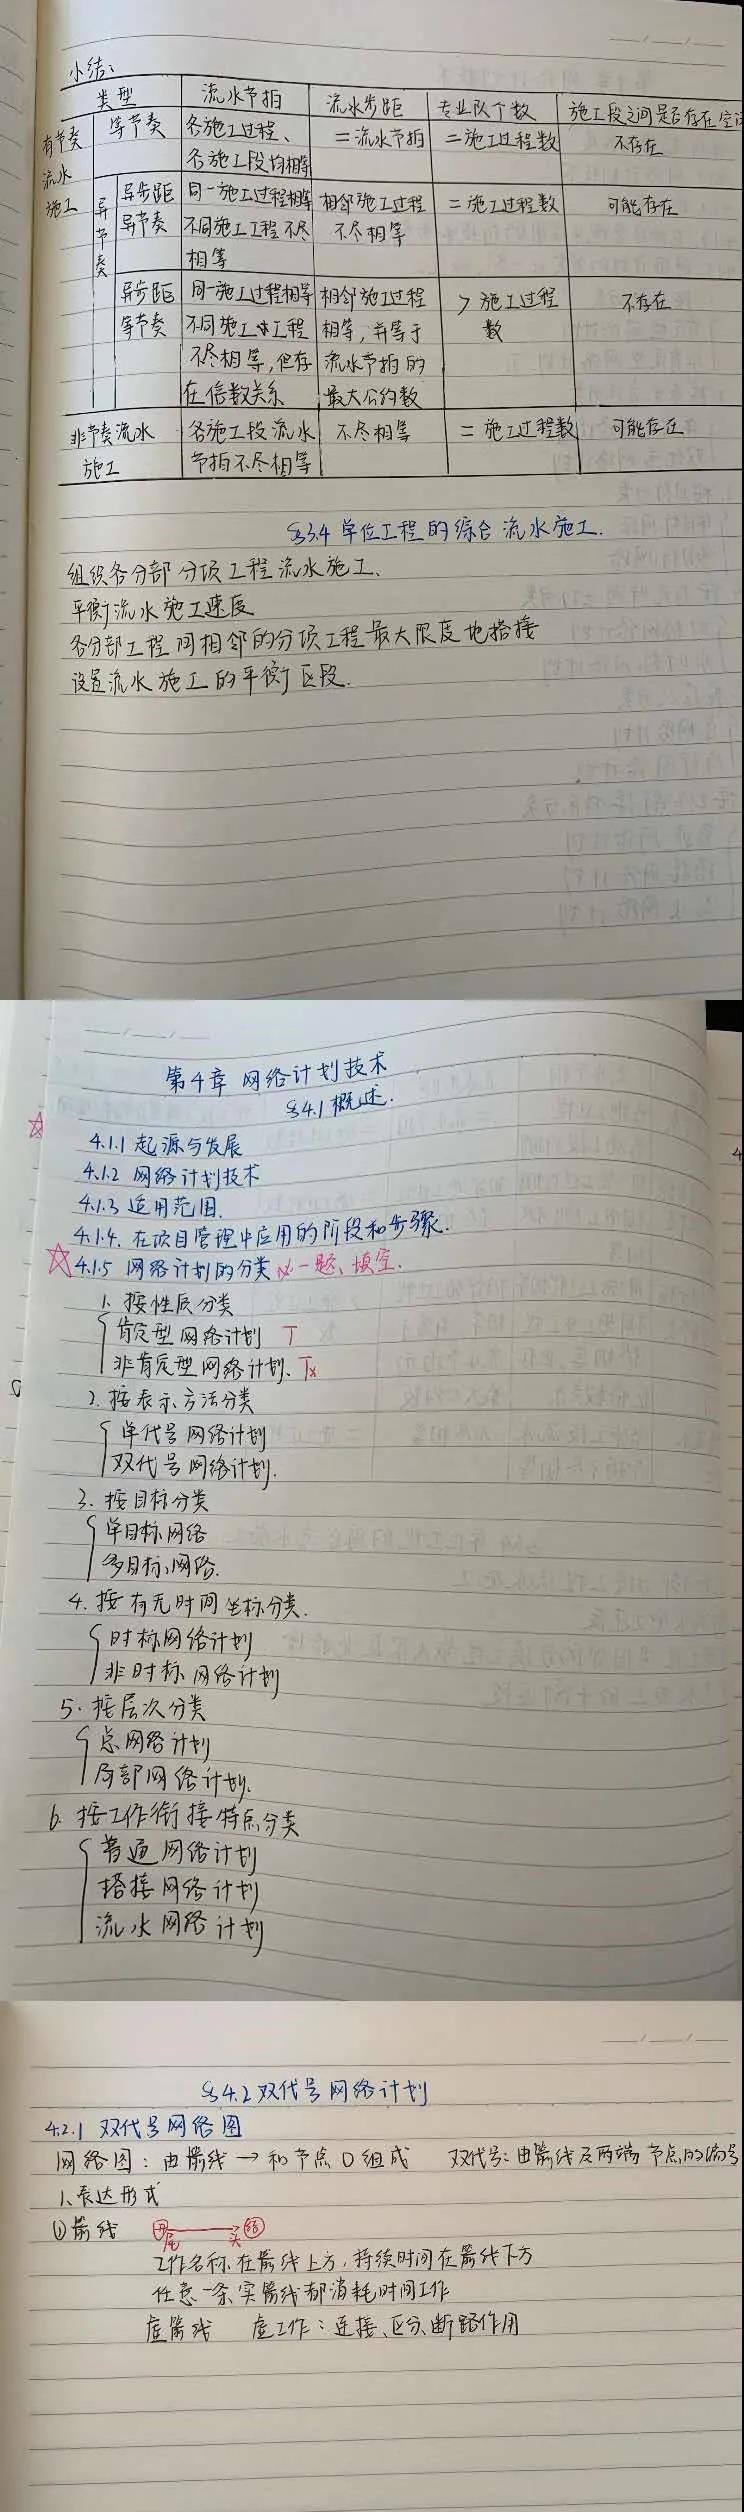 小结、
类型 流水节拍 流水步距 专业队个数 施工段之间是否存在空
有节奏 等节奏 各施工过程、 =流水节拍 =施工过程数 不存在
流水 各施工段均相等
施工 异步距 同一施工过程相等 相邻施工过程 =施工过程数 可能存在
异节奏 异节奏 不同施工工程不尽 不尽相等
相等
异步距 同一施工过程相等 相邻施工过程 >施工过程 不存在
等节奏 不同施工工程 相等,并等于 数
不尽相等,但存 流水节拍的
在倍数关系 最大公约数
非节奏流水 各施工段流水 不尽相等 =施工过程数 可能存在
施工 节拍不尽相等
§3.4 单位工程的综合流水施工.
组织各分部分项工程流水施工、
平衡流水施工速度
各分部工程间相邻的分项工程最大限度地搭接
设置流水施工的平衡区段.
第4章 网络计划技术
§4.1 概述.
4.1.1 起源与发展
4.1.2 网络计划技术
4.1.3 适用范围.
4.1.4. 在项目管理中应用的阶段和步骤.
4.1.5 网络计划的分类 一题、填空.
1. 按性质分类
肯定型网络计划 T
非肯定型网络计划. Tx
2. 按表示方法分类
单代号网络计划
双代号网络计划.
3. 按目标分类
单目标网络
多目标网络.
4. 按有无时间坐标分类.
时标网络计划
非时标网络计划
5. 按层次分类
总网络计划
局部网络计划.
6. 按工作衔接特点分类
普通网络计划
搭接网络计划
流水网络计划
§4.2 双代号网络计划
4.2.1 双代号网络图
网络图:由箭线→和节点○组成 双代号:由箭线及两端节点的编号
1、表达形式
①箭线 开 尾 头 结
工作名称在箭线上方,持续时间在箭线下方
任意一条实箭线都消耗时间工作
虚箭线 虚工作:连接、区分、断路作用